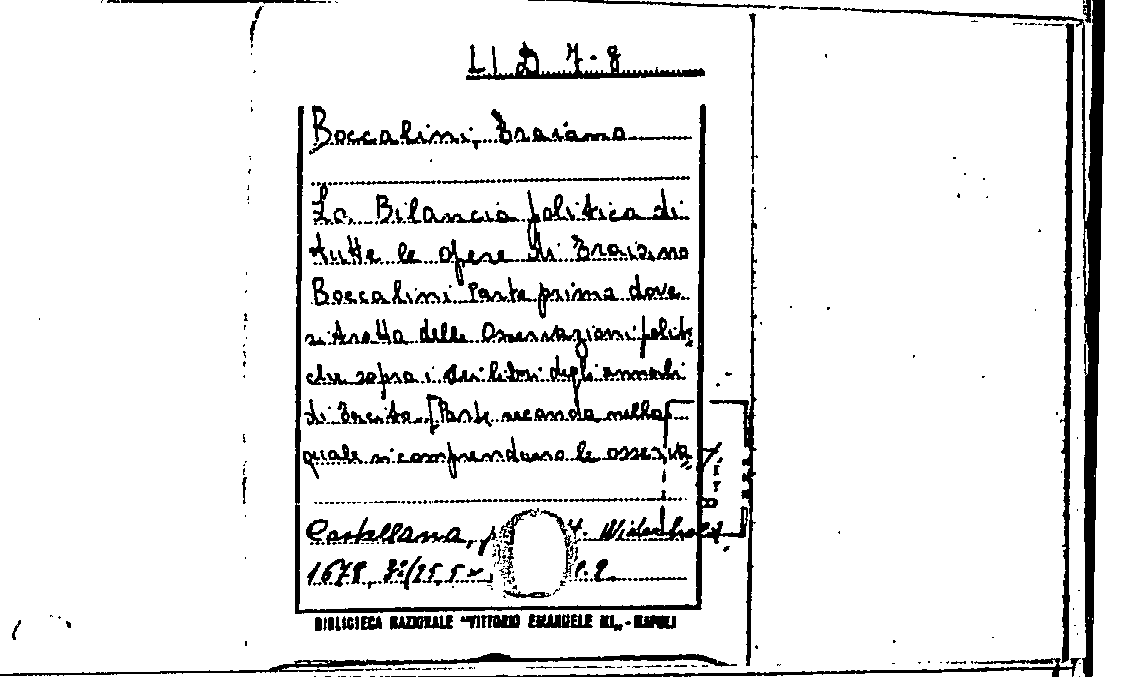 LI D 7-8
Boccalini, Traiano
La Bilancia politica di
tutte le opere di Traiano
Boccalini Parte prima dove
si tratta delle Osservazioni politi
che sopra i sei libri degli annali
di Tacito. [Parte seconda nella
quale si comprendano le osserva
Castellana, p H. Widerhold,
1678,
BIBLIOTECA NAZIONALE "VITTORIO EMANUELE III„ - NAPOLI